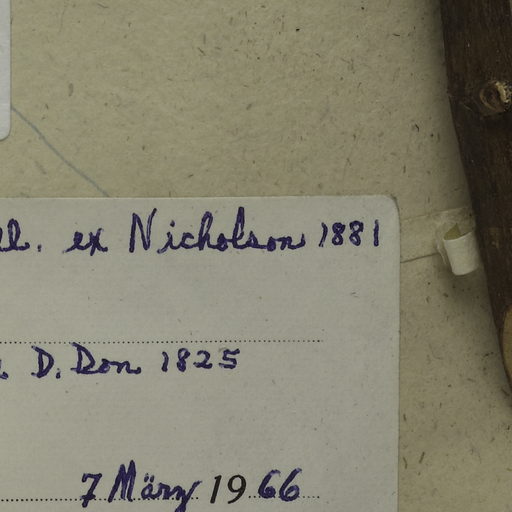 ex Nicholson 1881
D. Don 1825
7 März 1966